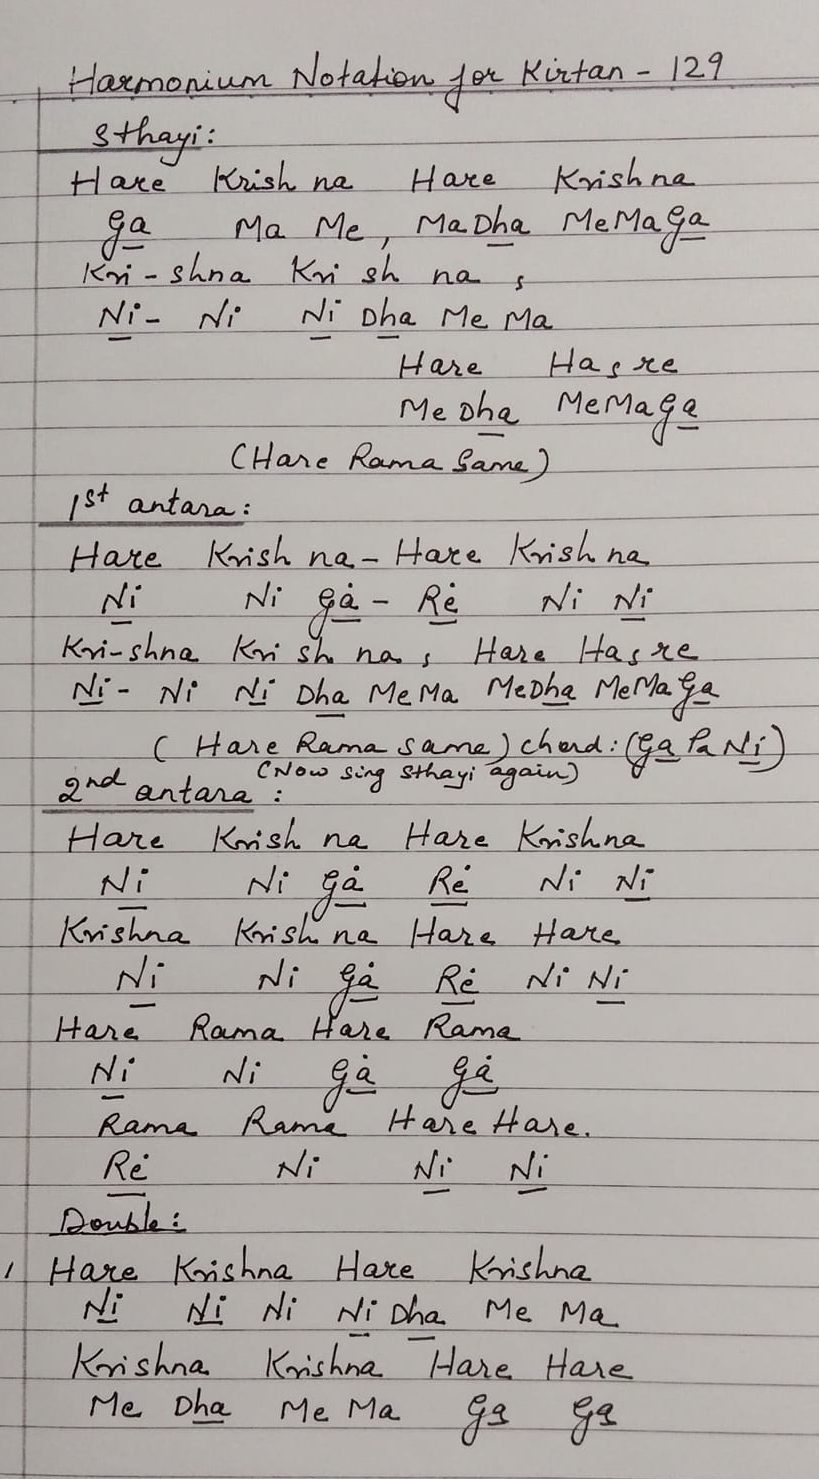 Harmonium Notation for Kirtan - 129
Sthayi:
Hare Krish na Hare Krishna
Ga Ma Me, MaDha MeMaGa
Kri - shna Kri sh na ,
Ni - Ni Ni Dha Me Ma
Hare Ha , re
Me Dha MeMaGa
(Hare Rama Same)
1st antara:
Hare Krish na - Hare Krish na
Ni Ni Gȧ - Rė Ni Ni
Kri-shna Kri sh na , Hare Ha , re
Ni - Ni Ni Dha MeMa MeDha MeMaGa
( Hare Rama same ) chord: (Ga Pa Ni)
(Now sing sthayi again)
2nd antara :
Hare Krish na Hare Krishna
Ni Ni Gȧ Rė Ni Ni
Krishna Krish na Hare Hare
Ni Ni Gȧ Rė Ni Ni
Hare Rama Hare Rama
Ni Ni Gȧ Gȧ
Rama Rama Hare Hare.
Rė Ni Ni Ni
Double:
1 Hare Krishna Hare Krishna
Ni Ni Ni Ni Dha Me Ma
Krishna Krishna Hare Hare
Me Dha Me Ma Ga Ga